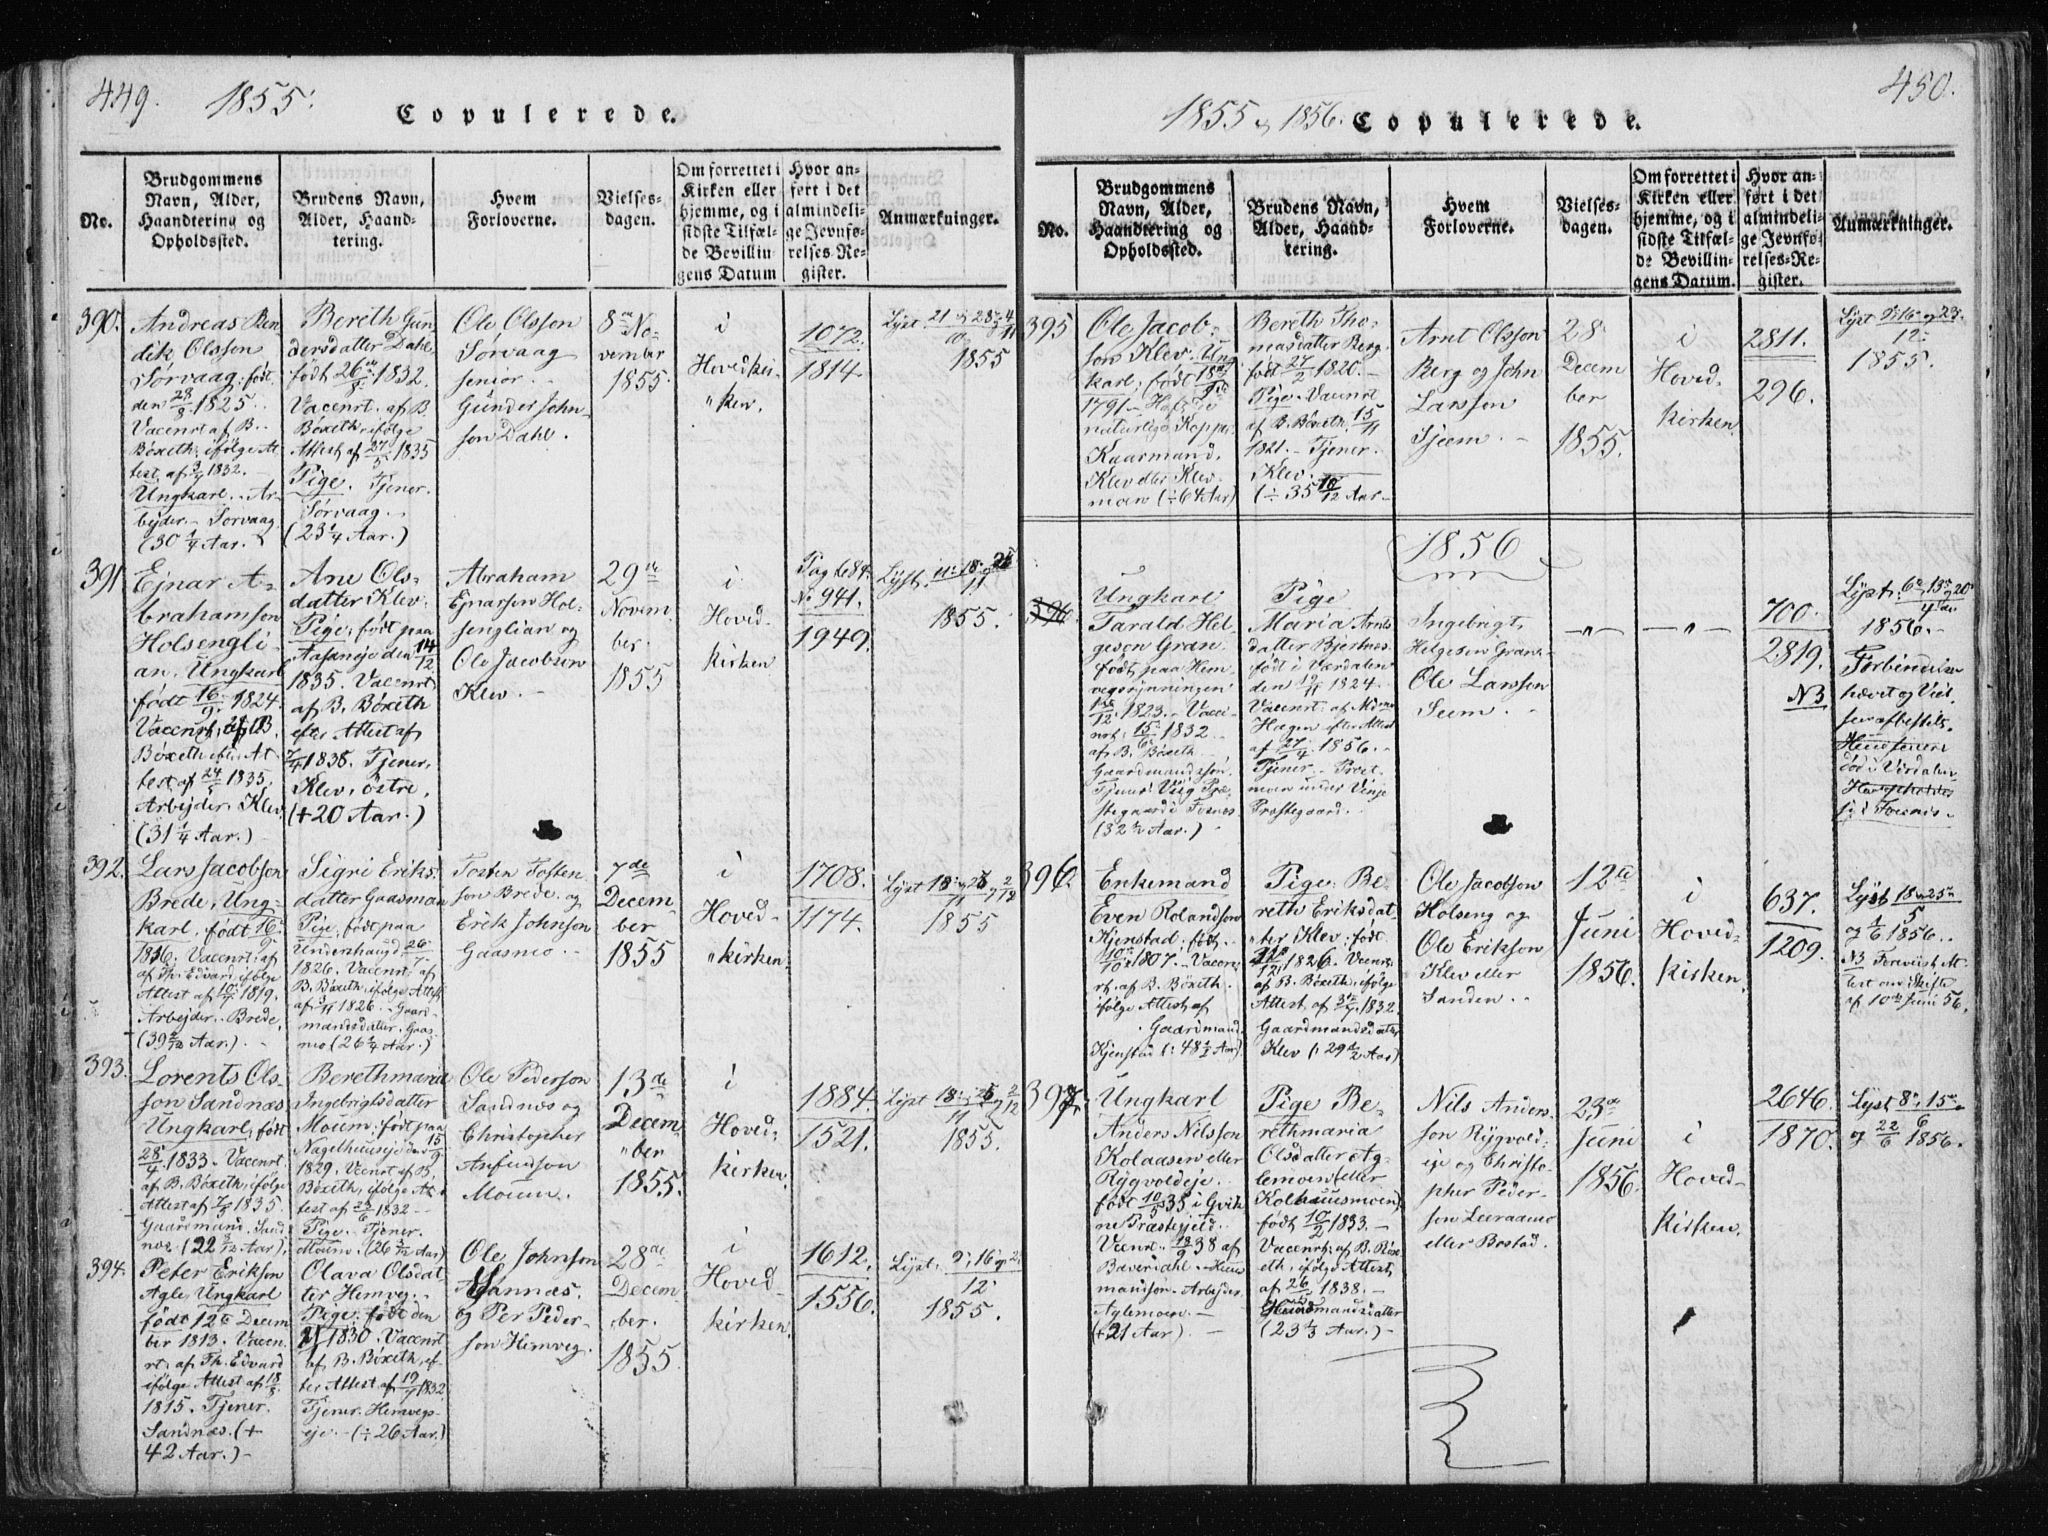 449.
1855.
Copulerede.
No.
Brudgommens
Navn, Alder,
Haandtering og
Opholdssted.
Brudens Navn,
Alder, Haand-
tering.
Hvem
Forloverne.
Vielses-
dagen.
Om forrettet i
Kirken eller
hjemme, og i
sidste Tilfæl-
de Bevillin-
gens Datum
Hvor an-
ført i det
almindeli-
ge Jevnfø-
relses-Re-
gister.
Anmærkninger.
390.
Andreas
dik Olsson
Sørvaag; født
den 28/8 1825.
Vaccnrt af B.
Böxeth, ifølge At-
test af 1832.
Ungkarl. Ar-
bejder. Sørvaag.
(30 1/4 Aar.)
Bereth Gun-
dersdatter Dahl,
født 26 1832.
Vaccnrt. af B.
Böxeth, ifølge
Attest af 27/5 1835
Pige. Tjener.
Sørvaag.
(23 1/4 Aar.)
Ole Olsson
Sørvaag
senior.
Gunder John-
son Dahl.
8de No-
vember
1855.
i
Hovedkir-
"ken.
1072.
1814.
Lyst 21 28 og 4
10 11
1855
391
Ejnar A-
brahamson
Holsengli-
an. Ungkarl
født 16/9 1824.
Vaccnrt. af B
Böxeth efter At-
test af 24/5 1835.
Arbejder. Klev
(31 1/4 Aar.)
Ane Ols-
datter Klev.
Pige; født paa
den 14/12
1835. Vaccnrt
af B. Böxeth
efter Attest af
7/4 1838. Tjener.
Klev, østre.
(+20 Aar.)
Abraham
Ejnarson Hol-
senglian og
Ole Jacobson
Klev.
29de
Novem
ber.
1855
i
Hoved-
kirken
Pag 684.
No 941.
1949.
Lyst. 11. 18. og 25
11
1855.
392.
Lars Jacobson
Brede, Ung-
karl, født 16.
1816. Vaccnrt. af
af Th. Edvard, ifølge
Attest af 10/7 1819.
Arbejder. Brede.
(39 2/12 Aar.)
Sigri Eriks
datter Gaasman
Pige, født paa
Undenhaugd 26/7
1826. Vaccnrt. af
B. Böxeth, ifølge Attest
af 3/11 1826. Gaard-
mandsdatter. Gaas-
mo (26 1/4 Aar.)
Tosten Tosten
son Brede. og
Erik Johnson
Gaasmo
7de
Decem-
ber
1855
i
Hoved-
"kirken.
1708.
1174.
Lyst 18. 25 og 2
11 12
1855
393.
Lorents Ols-
son Sandnæs
Ungkarl; født
28/4 1833. Vaccnrt.
af B. Böxeth, ifølge
Attest af 1835.
Gaardmand. Sand
næs. (22 Aar).
Berethmaria
Ingebrigtsdatter
Moum; født paa
Nagelhuusejd den 15/9
1829. Vaccnrt af B.
Böxeth, ifølge At-
test af 23/6 1832
Pige. Tjener.
Moum. (26 3/12 Aar)
Ole Pederson
Sandnæs og
Christopher
Anfindson
Moum.
13de
Decem-
"ber
1855.
i
Hoved-
kirken.
1884.
1521.
Lyst 18. 25 og 2
11 12
1855.
394.
Peter Erikson
Agle, Ungkarl
født 12te Decem
ber 1813. Vaccn
rt. af Th. Edvard
ifølge Attest af 18/8
1815. Tjener.
Sandnæs. (+
42 Aar.)
Olava Olsdat-
ter Hemveg.
Pige; født den
1830. Vaccnrt
af B. Böxeth, ef-
ter Attest af 19/7 1832
Tjener. Hemvegs-
eje. (÷26 Aar.)
Ole Johnson
Sannæs.
og Per Peder-
son Hemveg.
28de
Decem-
ber.
1855.
i
Hoved
kirken.
1612.
1556.
Lyst. 9. 16 og
12
1855.
450.
1855 og 1856.
Copulerede.
No.
Brudgommens
Navn, Alder,
Haandtering og
Opholdssted.
Brudens Navn,
Alder, Haand-
tering.
Hvem
Forloverne.
Vielses-
dagen.
Om forrettet i
Kirken eller
hjemme, og i
sidste Tilfæl-
de Bevillin-
gens Datum.
Hvor an-
ført i det
almindeli-
ge Jevnfø-
relses-Re-
gister.
Anmærkninger.
395
Ole Jacob-
son Klev. Ung
karl; født 18de
1791. Haft de
naturlige Kopper.
Kaarmand.
Klev eller Klev-
moen (÷64 Aar)
Bereth Tho-
masdatter Berg.
født 27/2 1820.
Pige. Vaccnrt
af B. Böxeth 15/11
1821. Tjener.
Klev.
(÷ 35 10/12 Aar
Arnt Olsson
Berg og John
Larsson
28
Decem
ber
1855.
i
Hoved-
kirken.
2811.
296.
Lyst 9. 16 og 23.
12.
1855.
1856
396
Ungkarl
Tarald Hel-
geson Gran
født paa Hem
vegsrynningen
1823. Vacci-
nrt. 15/6 1832
af B. Böxeth
Gaardmandssøn.
Tjener Præ-
stegaard i Fosnes
(32 Aar.)
Pige
Maria Arnts
datter Bjertnes
født i Værdalen
den 19/11 1824.
Vaccnrt. af
Hagen efter Attest
af 27/4 1856.
Tjener.
man under
Præstegaard.
Ingebrigt
Helgeson Gran.
Ole Larsson
Seem.
—"—
—"—
700.
2819.
N3
Lyst. 6. 13. og 20
4
1856.
Forbindelsen
hævet og Viel-
sen afbestilt.
i Værdalen
i Fosnes.
396.
Enkemand
Even Rolandson
Kjenstad; født.
10/10 1807. Vaccn-
rt. af B. Böxeth.
ifølge Attest af
Gaardmand.
Kjenstad (48 1/2 Aar)
Pige. Be-
reth Eriksdat-
ter Klev; født
1826. Vaccn
af B. Böxeth, ifølge
Attest af 1832.
Gaardmandsdatter
Klev (29 1/2 Aar)
Ole Jacobson
Holseng og
Ole Erikson
Klev eller
Sanden.
12te
Juni
1856.
i
Hoved-
kirken.
637.
1209.
Lyst 18 og 25
5
og 1/6 1856.
N3 Foreviist At-
test om Skifte
af 10de Juni 56.
397.
Ungkarl
Anders Nilsson
Kolaasen eller
Rygvoldeje.
født 10/5 35 i Qvik
ne Præstegjeld.
Vccnrt. 18/9 38 af
Baverdahl. Huus
mandsøn. Arbejder.
Aglemoen.
(+21 Aar).
Pige Be-
rethmaria
Olsdatter Ag-
lemoen (eller
Kolhuusmoen)
født 10/2 1833.
Vaccnrt. af B. Böx-
eth, ifølge Attest,
af 26 1838.
Huusmandsdatter
(23 1/3 Aar.)
Nils Anders
son Rygvold-
eje og Christo-
pher Peder-
son Leeraamo
eller Bostad.
23de
Juni
1856.
i
Hoved-
kirken.
2646.
1870.
Lyst 8. 15.
6
og 22/6 1856.